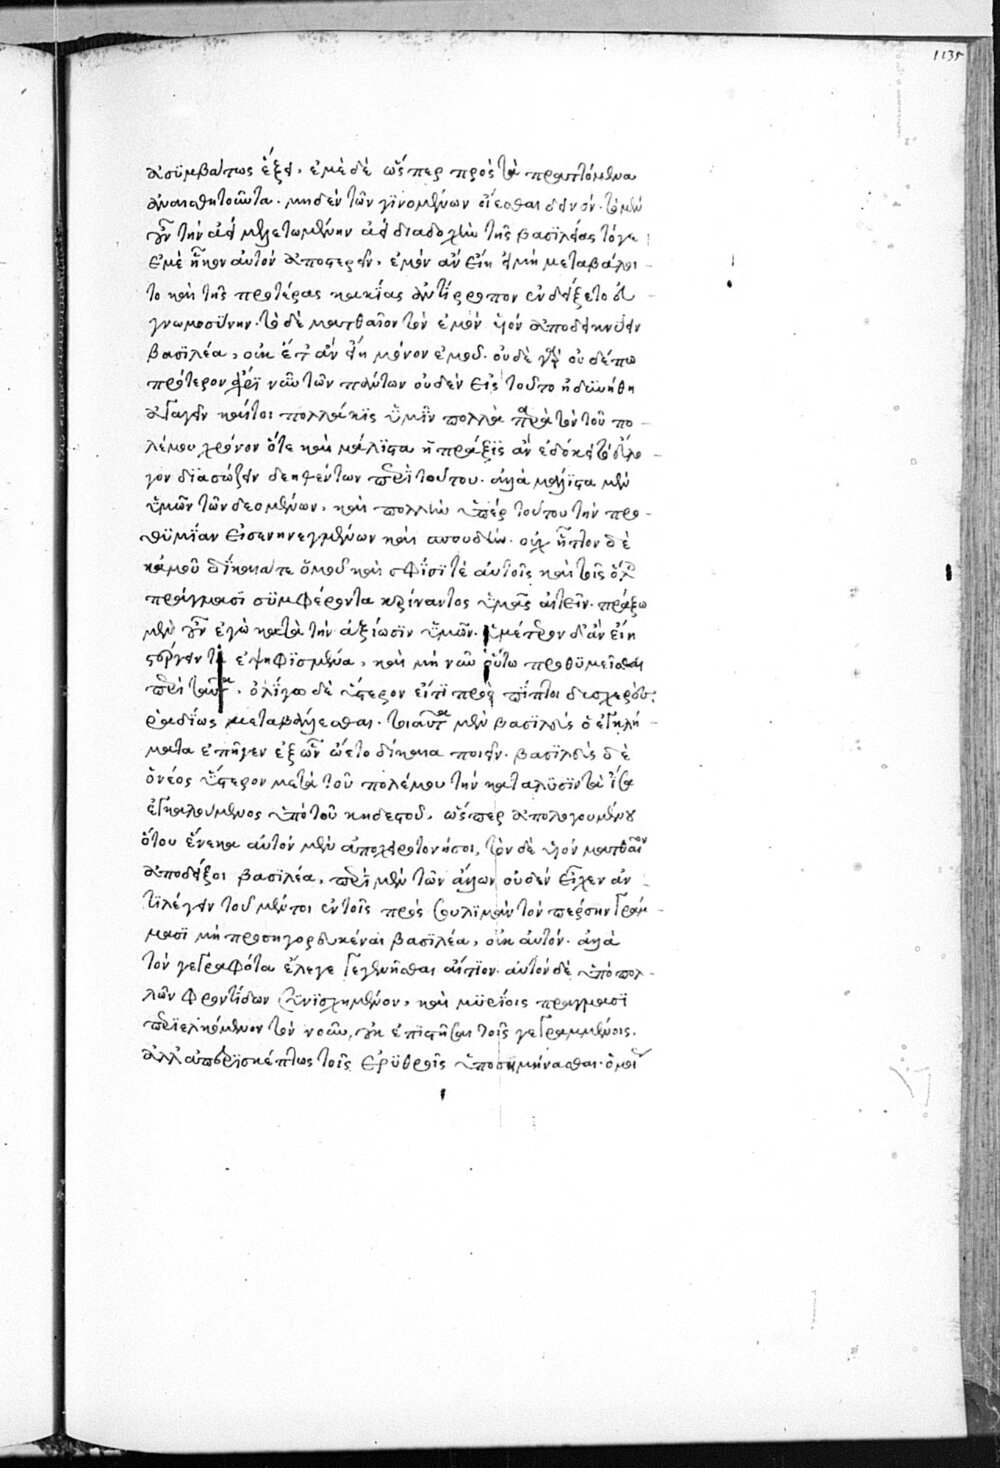 1135
ἀσϋμβάτως ἕξει. ἐμὲ δὲ ὥσπερ πρὸς τὰ πραττόμενα
ἀναισθητοῦντα. μηδὲν τῶν γϊνομένων οἴεσθαι δεινόν. τὸ μὲν
οὖν τὴν μελετωμένην διαδοχὴν τῆς βασιλείας τόγε
ἐμὲ ἧκον αὐτὸν ἀποστερεῖν, ἐμὸν ἂν εἴη εἰ μὴ μεταβάλοι-
το καὶ τῆς προτέρας κακίας ἀντίρροπον ἐνδείξετο
γνωμοσύνην. τὸ δὲ ματθαῖον τὸν ἐμὸν υἱὸν ἀποδεικνύειν
βασϊλέα, οὐκ ἔτ' ἂν εἴη μόνον ἐμοῦ. οὐδὲ γὰρ οὐδέπω
πρότερον νῦν τῶν πάντων οὐδὲν εἰς τοῦτο ἠδυνήθη
ἀγαγεῖν καίτοι πολλάκϊς ὑμῖν πολλὰ παρὰ τὸν τοῦ πο-
λέμου χρόνον ὅτε καὶ μάλιστα ἡ πρᾶξϊς ἂν ἐδόκει τὸ εὔλο-
γον διασώζειν δεηθέντων περὶ τούτου. ἀλλὰ μάλϊστα μὲν
ὑμῶν τῶν δεομένων, καὶ πολλὴν ὑπὲρ τούτου τὴν προ-
θϋμΐαν εἰσενηνεγμένων καὶ σπουδήν. οὐχ ἧττον δὲ
κἀμοῦ δίκαιά τε ὁμοῦ καὶ σφίσϊ τὲ αὐτοῖς καὶ τοῖς ὅλοις
πράγμασϊ σϋμφέροντα κρίναντος ὑμᾶς αἰτεῖν. πράξω
μὲν οὖν ἐγὼ κατὰ τὴν ἀξίωσϊν ὑμῶν. ὑμέτερον δ' ἂν εἴη
στέργειν τὰ ἐψηφϊσμένα, καὶ μὴ νῦν οὕτω προθϋμεῖσθαι
περὶ ταῦτα, ὀλΐγω δὲ ὕστερον εἴ τϊ προσπΐπτοι δυσχερὲς,
ῥαδΐως μεταβάλλεσθαι. τοιαῦτα μὲν βασϊλεὺς ὁ ἐγκλή-
ματα ἐπῆγεν ἐξ ὧν ᾤετο δίκαια ποιεῖν. βασϊλεὺς δὲ
ὁ νέος ὕστερον μετὰ τοῦ πολέμου τὴν κατάλϋσϊν τὰ ἴσα
ἐγκαλούμενος ὑπὸ τοῦ κηδεστοῦ, ὥσπερ ἀπολογουμένου
ὅτου ἕνεκα αὐτὸν μὲν ἀποχειροτονήσοι, τὸν δὲ υἱὸν ματθαῖον
ἀποδείξοι βασϊλέα, περὶ μὲν τῶν ἄλλων οὐδὲν εἶχεν ἀν-
τϊλέγειν τοῦ μέντοι ἐν τοῖς πρὸς σουλϊμὰν τὸν πέρσην γράμ-
μασϊ μὴ προσηγορευκέναι βασϊλέα, οὐκ αὐτὸν. ἀλλὰ
τὸν γεγραφότα ἔλεγε γεγενῆσθαι αἴτϊον. αὐτὸν δὲ ὑπὸ πολ-
λῶν φροντίδων συνϊσχημένον, καὶ μϋρίοις πράγμασϊ
περϊελκόμενον τὸν νοῦν, οὐκ ἐπϊστῆσαι τοῖς γεγραμμένοις.
ἀλλ' ἀπερϊσκέπτως τοῖς ἐρϋθροῖς ὑποσημήνασθαι. ὁμοῦ